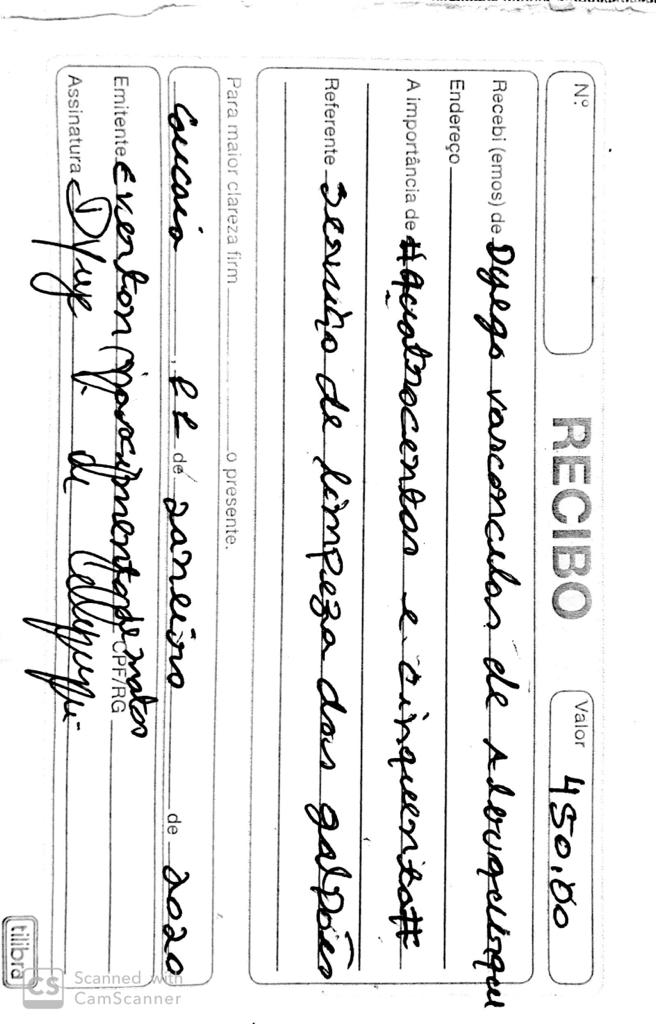 Nº RECIBO Valor 450,00
Recebi (emos) de Dyego varconcelos de Albuquerque
Endereço
A importância de #quatrocentos e cinquenta#
Referente serviço de limpeza dos galpões
Para maior clareza firm o presente.
Caucaia, de Janeiro de 2020
Emitente Everton Nascimento de matos CPF/RG
Assinatura
tilibra
CS Scanned with CamScanner